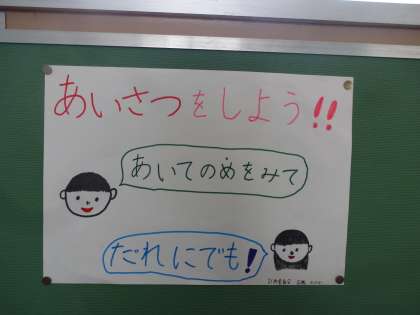 あいさつをしよう!!
あいてのめをみて
だれにでも!